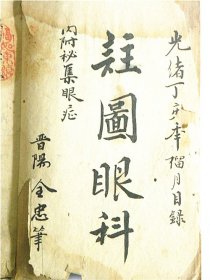 光緒丁丑年榴月目錄
註圖眼科
內附秘集眼症
晋陽 全忠筆